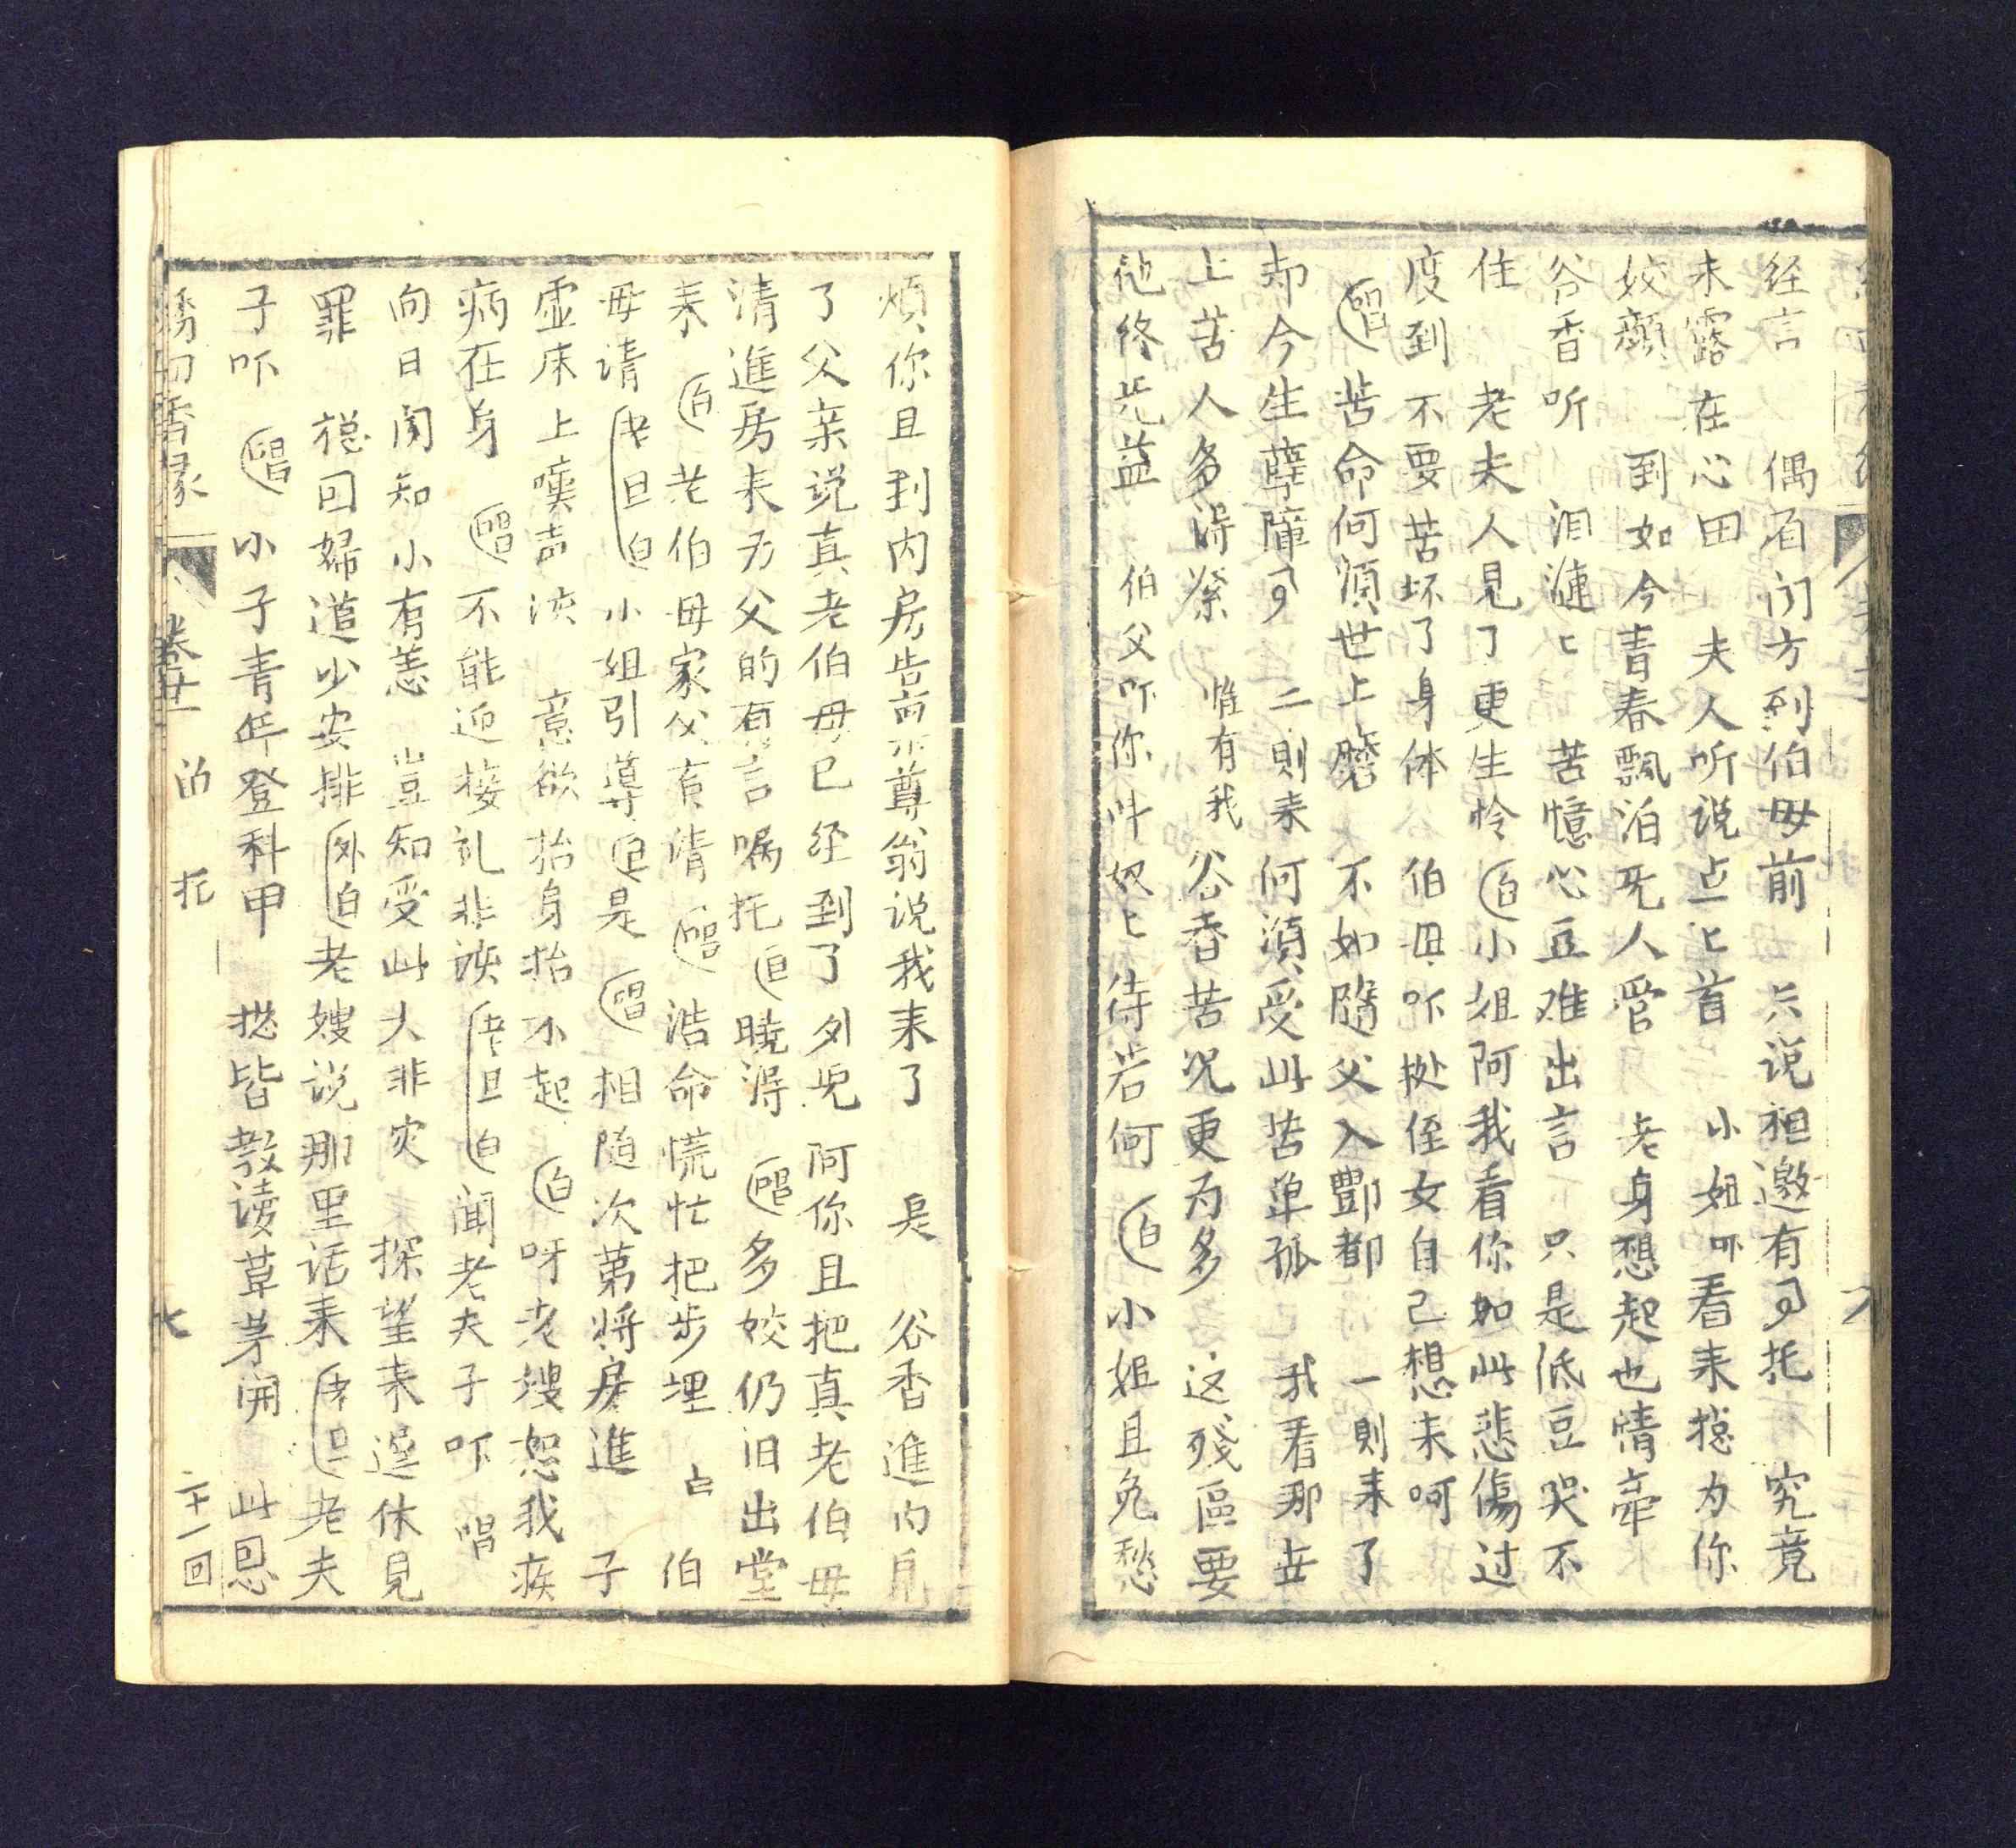 经言　偶有门方到伯毋前　只说祖邀有事托　究竟
未露在心田　夫人听说点匕首　小姐吓看来捴为你
姣颜　到如今青春飘泊旡人管　老身想起也情牵
谷香听　泪涟匕　苦憶心豆难出言　只是低豆哭不
住　老夫人見了更生怜　白　小姐阿我看你如此悲傷过
度到不要苦坏了身体　伯毋吓挞侄女自己想来呵
唱　苦命何須世上磨　不如随父入酆都　一則来了
却今生孽障事　二則来何須受此苦单孤　我看那世
上苦人多得紧　惟有我谷香苦况更为多　这残區要
他终旡益　伯父吓你叫奴匕待若何　白　小姐且免愁
烦你且到内房告禀尊翁说我来了　是　谷香進内見
了父亲说真老伯毋已经到了　外　児阿你且把真老伯毋
請進房来为父的有言嘱托　旦　曉得　唱　多姣仍旧出堂
来　白　老伯毋家父有请　唱　浩命慌忙把步埋　占　伯
毋请　老旦白　小姐引導　旦　是　唱　相随次第将房進　子
虚床上嘆声　意欲抬身抬不起　白　呀老嫂恕我疾
病在身　唱　不能迎接礼非诶　老旦白　闻老夫子吓　唱
向日闻知小有恙　豈知受此大非灾　探望来遅休見
罪　捴回婦道少安排　外白　老嫂说那里话来　老旦　老夫
子吓　唱　小子青年登科甲　捴皆教读草茅開　此回恩
绣　香緣　卷廿一　泊　托　七　二十一回